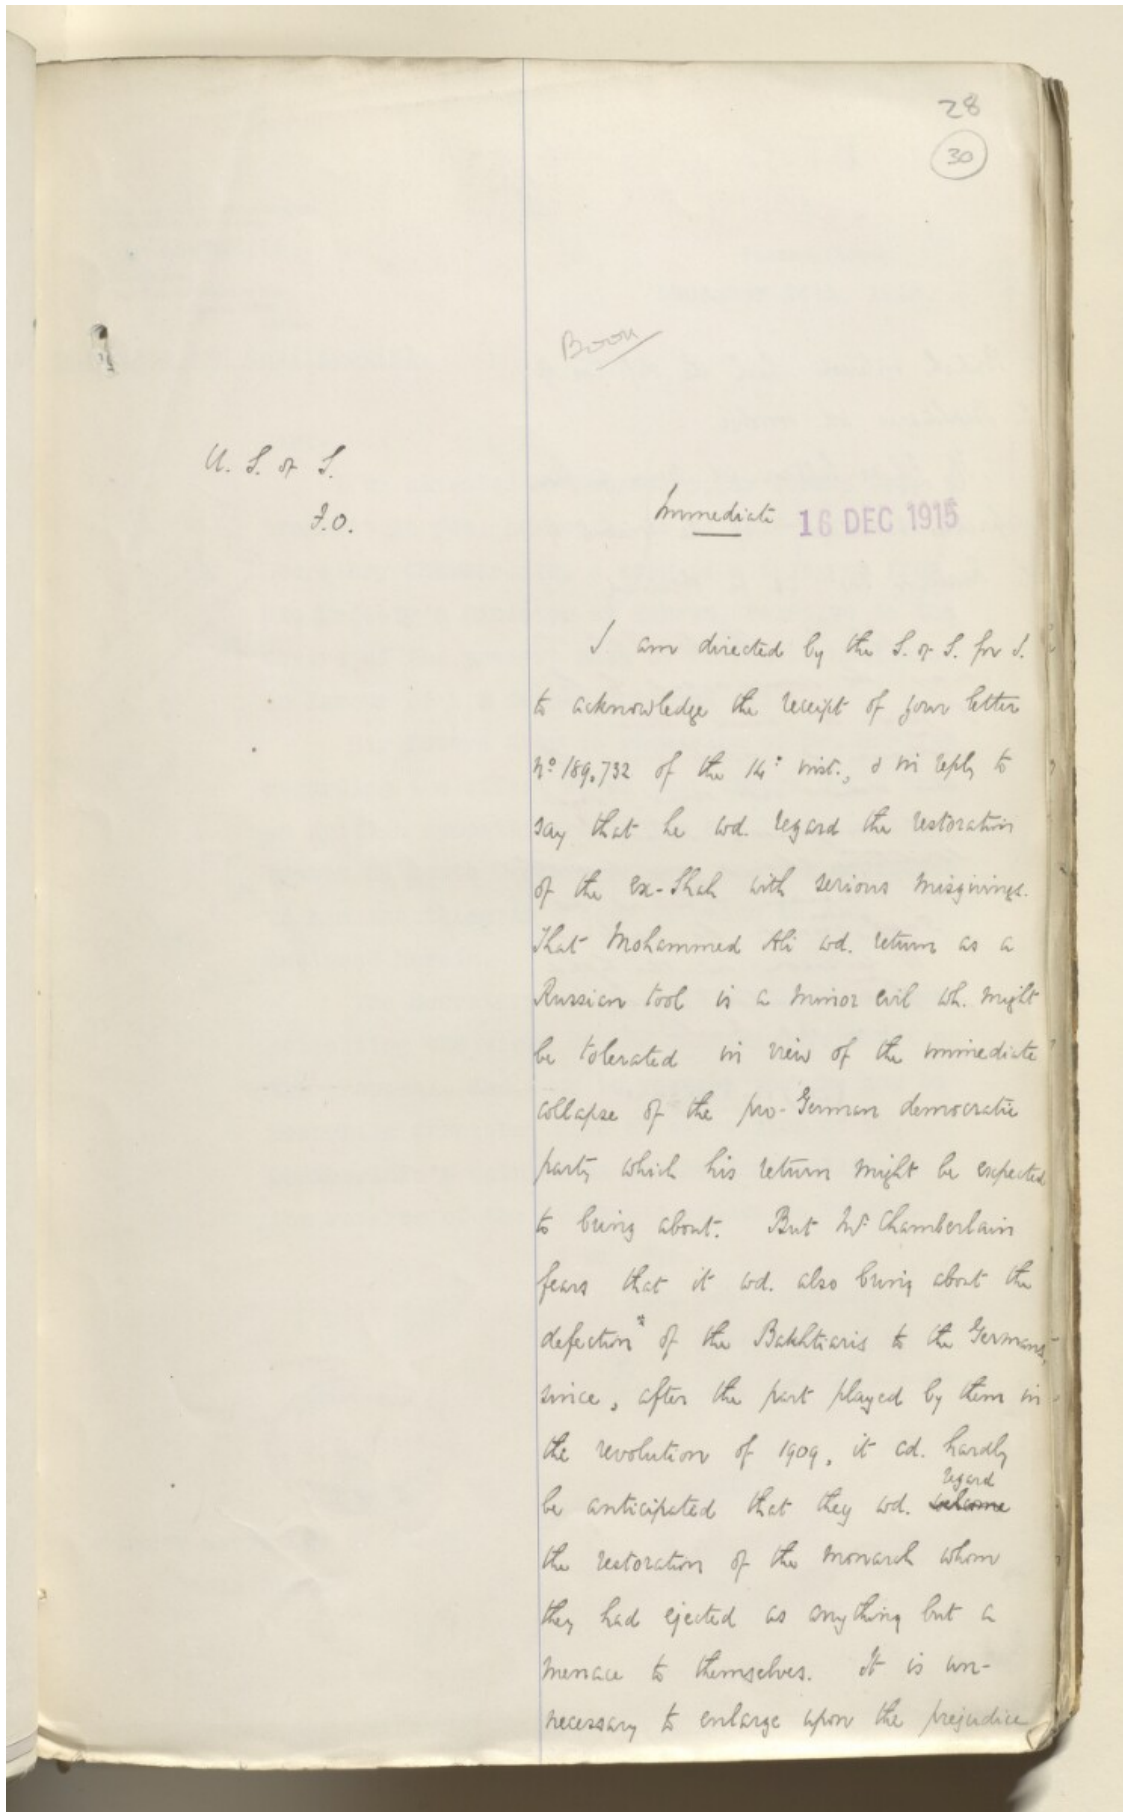 28
30
U. S. of S.
F.O.
Immediate 16 DEC 1915
I am directed by the S. of S. for I.
to acknowledge the receipt of your letter
No 189,732 of the 14: inst., & in reply to
say that he wd. regard the restoration
of the ex-Shah with serious misgivings.
That Mohammed Ali wd. return as a
Russian tool is a minor evil wh. might
be tolerated in view of the immediate
collapse of the pro-German democratic
party which his return might be expected
to bring about. But Mr Chamberlain
fears that it wd. also bring about the
defection* of the Bakhtiaris to the Germans,
since, after the part played by them in
the revolution of 1909, it cd. hardly
regard
be anticipated that they wd. welcome
the restoration of the monarch whom
they had ejected as anything but a
menace to themselves. It is un-
necessary to enlarge upon the prejudice